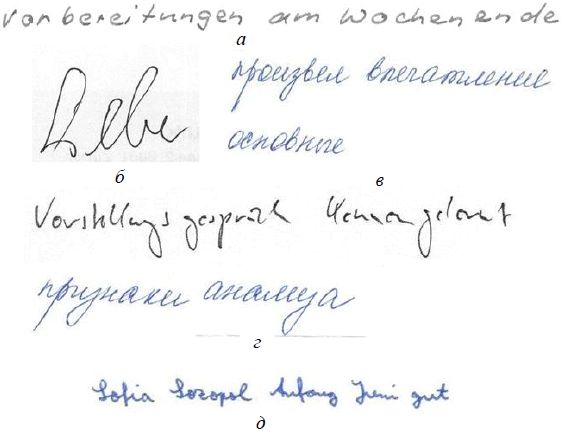 Vorbereitungen am Wochenende
а
произвел впечатление
Liebe
основные
б в
Vorstellungsgespräch kennengelernt
признаки анализа
г
Sofia Sozopol Anfang Juni gut
д